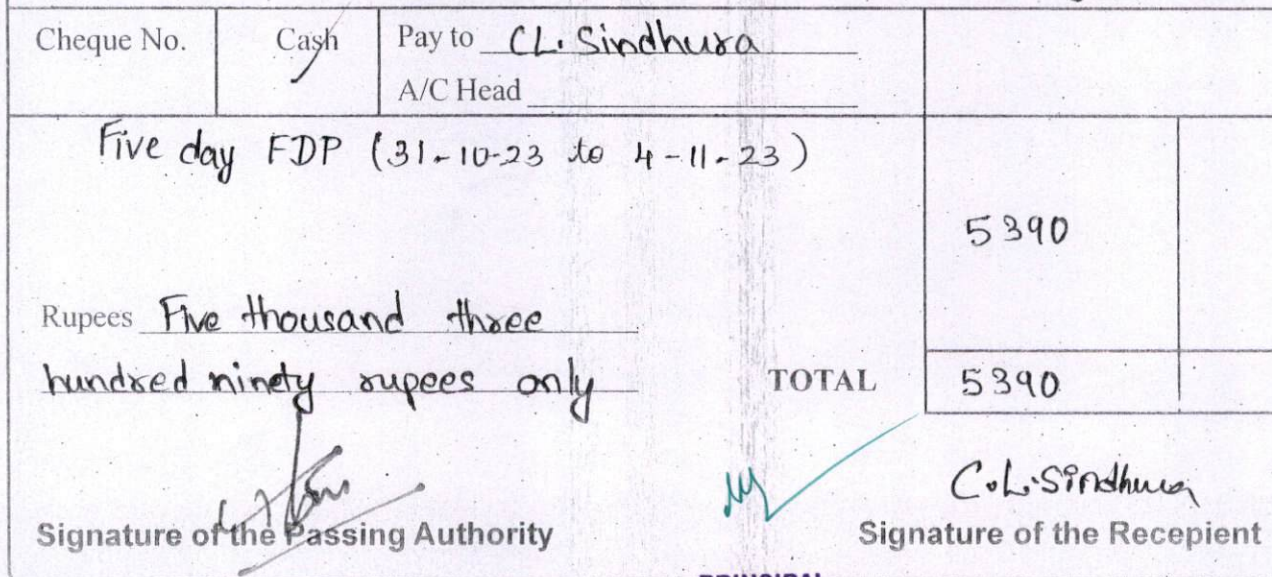 Cheque No. Cash Pay to CL. Sindhura
A/C Head
Five day FDP (31-10-23 to 4-11-23)
5390
Rupees Five thousand three
hundred ninety rupees only TOTAL 5390
C.L.Sindhura
Signature of the Passing Authority Signature of the Recepient
PRINCIPAL